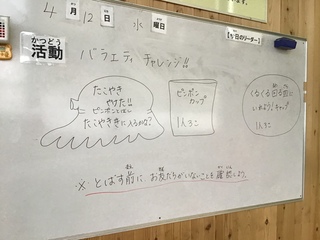 4月12日 水曜日
【今日のリーダー】
かつどう
活動
バラエティ チャレンジ!!
たこやき
やけた!!
ピンポンとばし
たこやききに入るかな?
ピンポン
カップ
1人5こ
いれよう!キャップ
1人5こ
※とばす前に、お友だちがいないことを確認しよう。